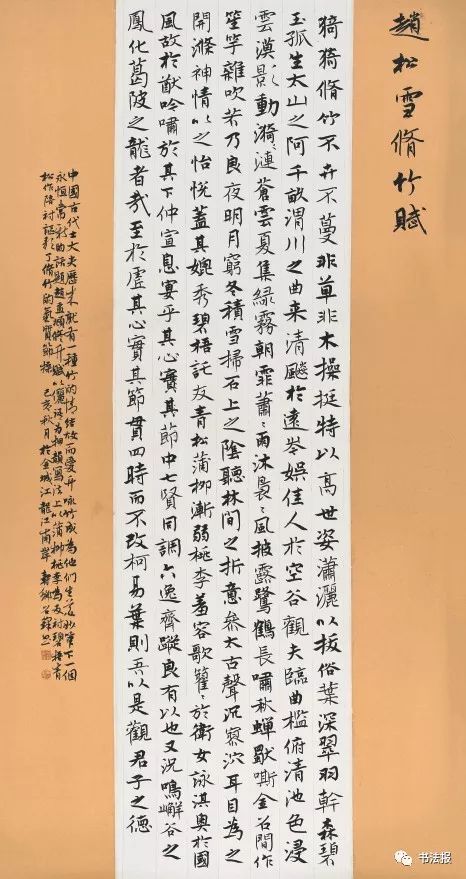 趙松雪脩竹賦
猗猗脩竹不卉不蔓非草非木操挺特以高世姿瀟灑以拔俗葉深翠羽幹森碧
玉孤生太山之阿千畝渭川之曲来清飈於遠岑娛佳人於空谷觀夫臨曲檻俯清池色浸
雲漢影動漪漣蒼雲夏集綠霧朝霏蕭〻雨沐裊〻風披露鷺鶴長嘯秋蟬嘶金石間作
笙竽雜吹若乃良夜明月窮冬積雪掃石上之陰聽林間之折意參太古聲沉寥泬耳目為之
開滌神情以之怡悅蓋其媲秀碧梧託友青松蒲柳漸弱桃李羞容歌籊〻於衛女詠淇奧於國
風故於猷吟嘯於其下仲宣息宴乎其心實其節中七賢同調六逸齊蹤良有以也又況鳴嶰谷之
鳳化葛陂之龍者哉至於虛其心實其節貫四時而不改柯易葉則吾以是觀君子之德
中國古代士大夫歷来就有一種竹的情结故而愛竹咏竹成為他們生花妙筆下一個
永恒常新的話題趙孟頫脩竹賦以為押韻寫法上以蒲柳桃李為友討碧梧青
松作陪衬謳歌了脩竹的氣質節操 己亥秋月於金城江龍江南岸
书法报